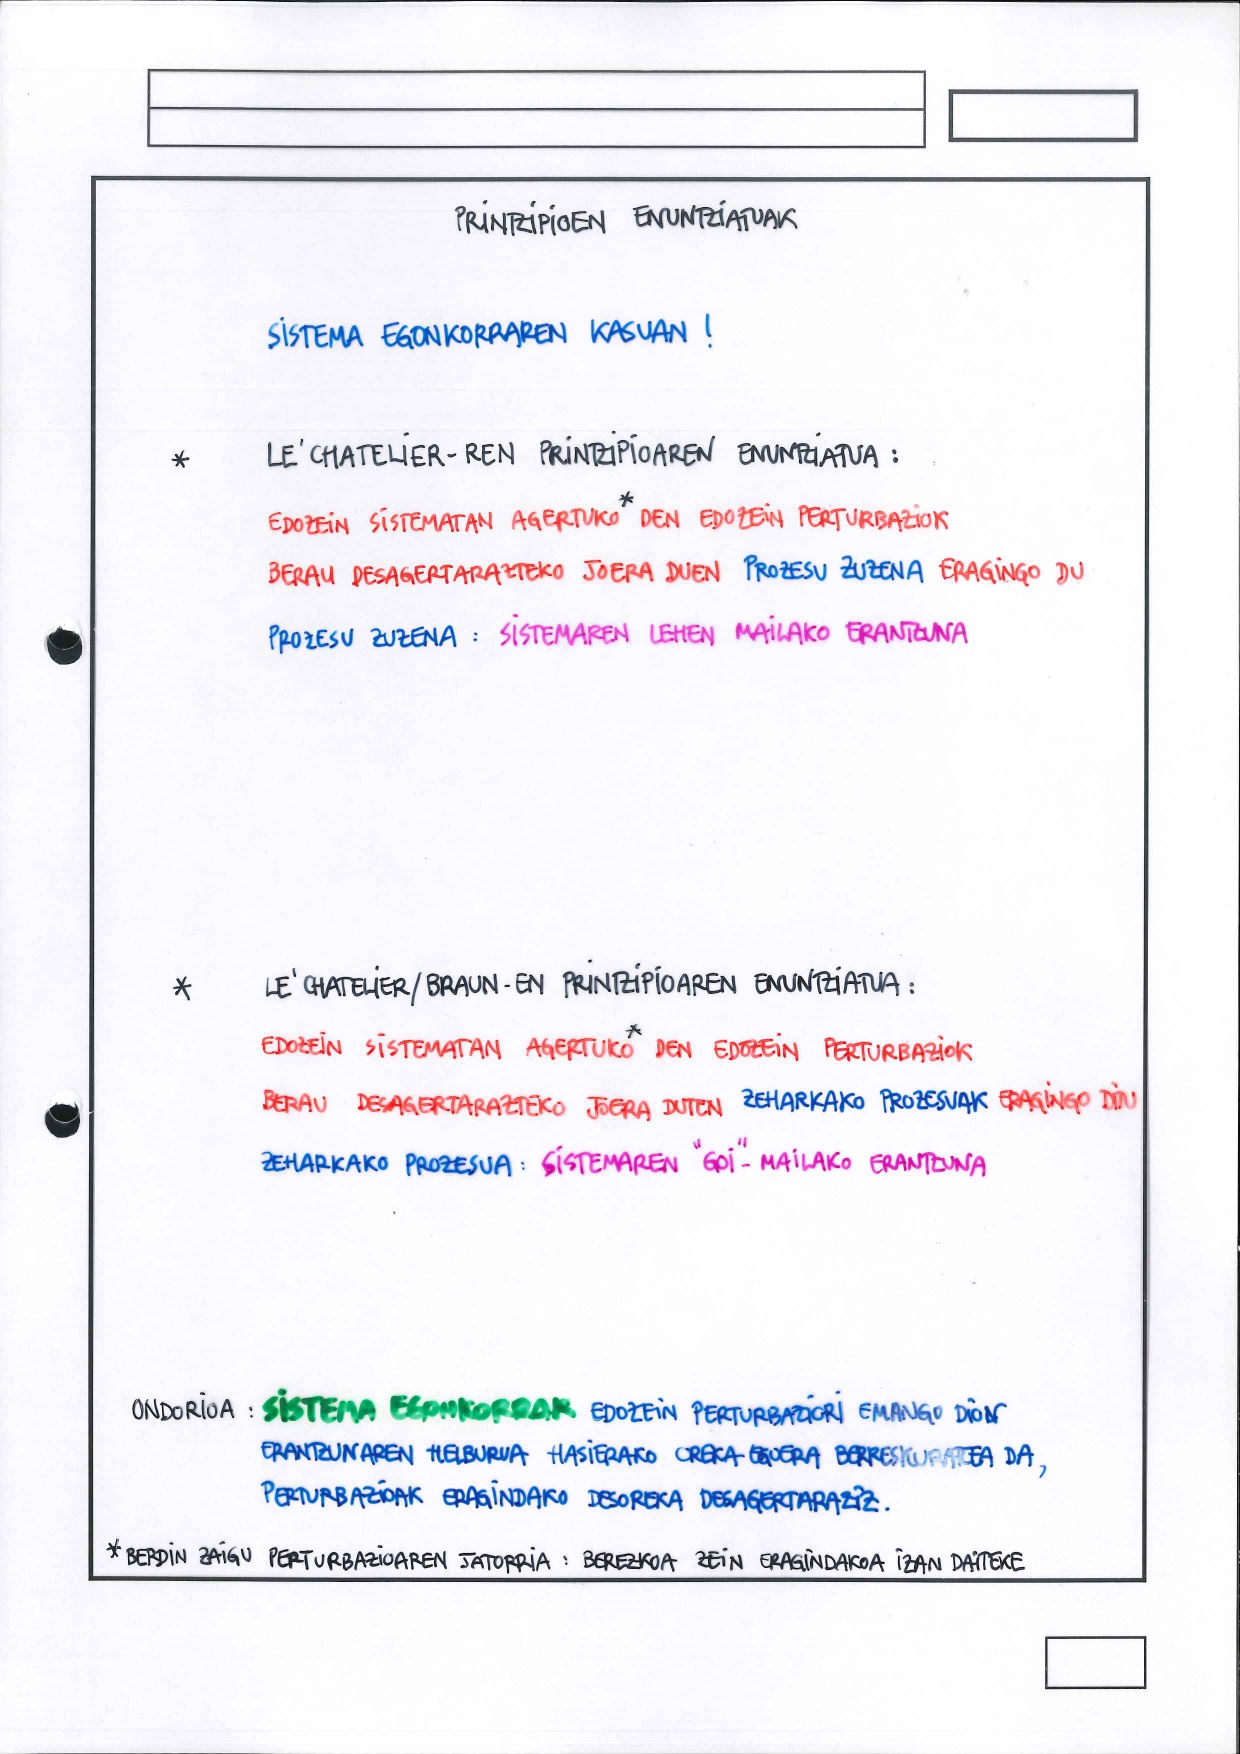 PRINTZIPIOEN ENUNTZIATUAK
SISTEMA EGONKORRAREN KASUAN !
* LE'CHATELIER-REN PRINTZIPIOAREN ENUNTZIATUA :
EDOZEIN SISTEMATAN AGERTUKO* DEN EDOZEIN PERTURBAZIOK
BERAU DESAGERTARAZTEKO JOERA DUEN PROZESU ZUZENA ERAGINGO DU
PROZESU ZUZENA : SISTEMAREN LEHEN MAILAKO ERANTZUNA
* LE'CHATELIER/BRAUN-EN PRINTZIPIOAREN ENUNTZIATUA :
EDOZEIN SISTEMATAN AGERTUKO* DEN EDOZEIN PERTURBAZIOK
BERAU DESAGERTARAZTEKO JOERA DUTEN ZEHARKAKO PROZESUAK ERAGINGO DITU
ZEHARKAKO PROZESUA : SISTEMAREN "GOI"-MAILAKO ERANTZUNA
ONDORIOA : SISTEMA EGONKORRAK EDOZEIN PERTURBAZIORI EMANGO DION
ERANTZUNAREN HELBURUA HASIERAKO OREKA-EGOERA BERRESKURATZEA DA,
PERTURBAZIOAK ERAGINDAKO DESOREKA DESAGERTARAZIZ.
* BERDIN ZAIGU PERTURBAZIOAREN JATORRIA : BEREZKOA ZEIN ERAGINDAKOA IZAN DAITEKE